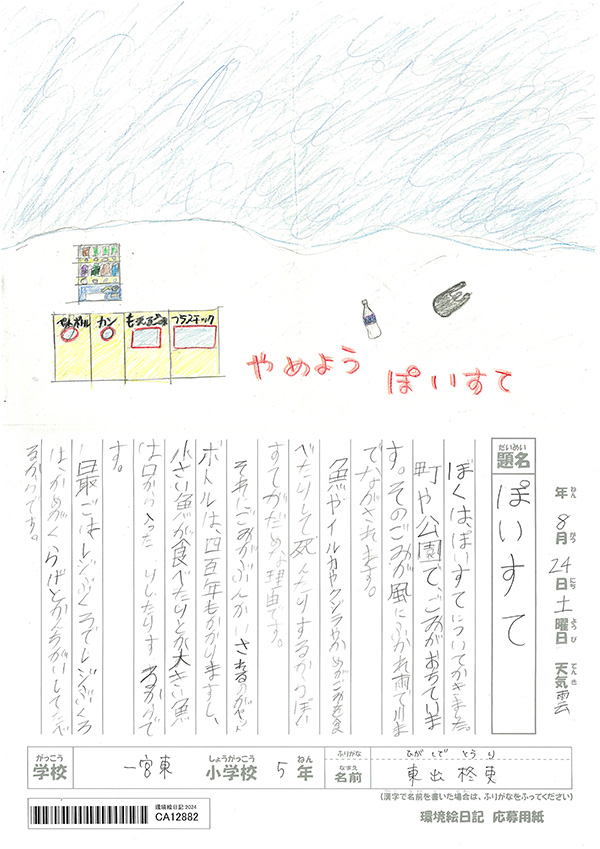 ペットボトル
カン
もえるごみ
プラスチック
やめよう ぽいすて
だいめい
題名
ぽいすて
年 8月 24日 土曜日 天気 雲
ねん がつ にち ようび てんき
ぼくは、ぽいすてについてかきました。
町や公園で、ごみがおちていま
す。そのごみが風にふかれ雨でりま
でながされます。
魚やイルカやクジラやかめがごみを食
べたりして死んだりするからぽい
すてがだめな理由です。
それにごみがぶんかいされるのがペット
ボトルは、四百年もかかりますし、
小さい魚が食べたりとか大きい魚
は口から入ったりしたりするからで
す。
最ごはレジぶくろでレジぶくろ
はかめがくらげとかんちがいしてたべ
るからです。
がっこう
学校
一宮東
しょうがっこう
小学校
5
ねん
年
ふりがな
ひがしで とうり
なまえ
名前
東出 柊吏
(漢字で名前を書いた場合は、ふりがなをふってください)
環境絵日記2024
CA12882
環境絵日記 応募用紙